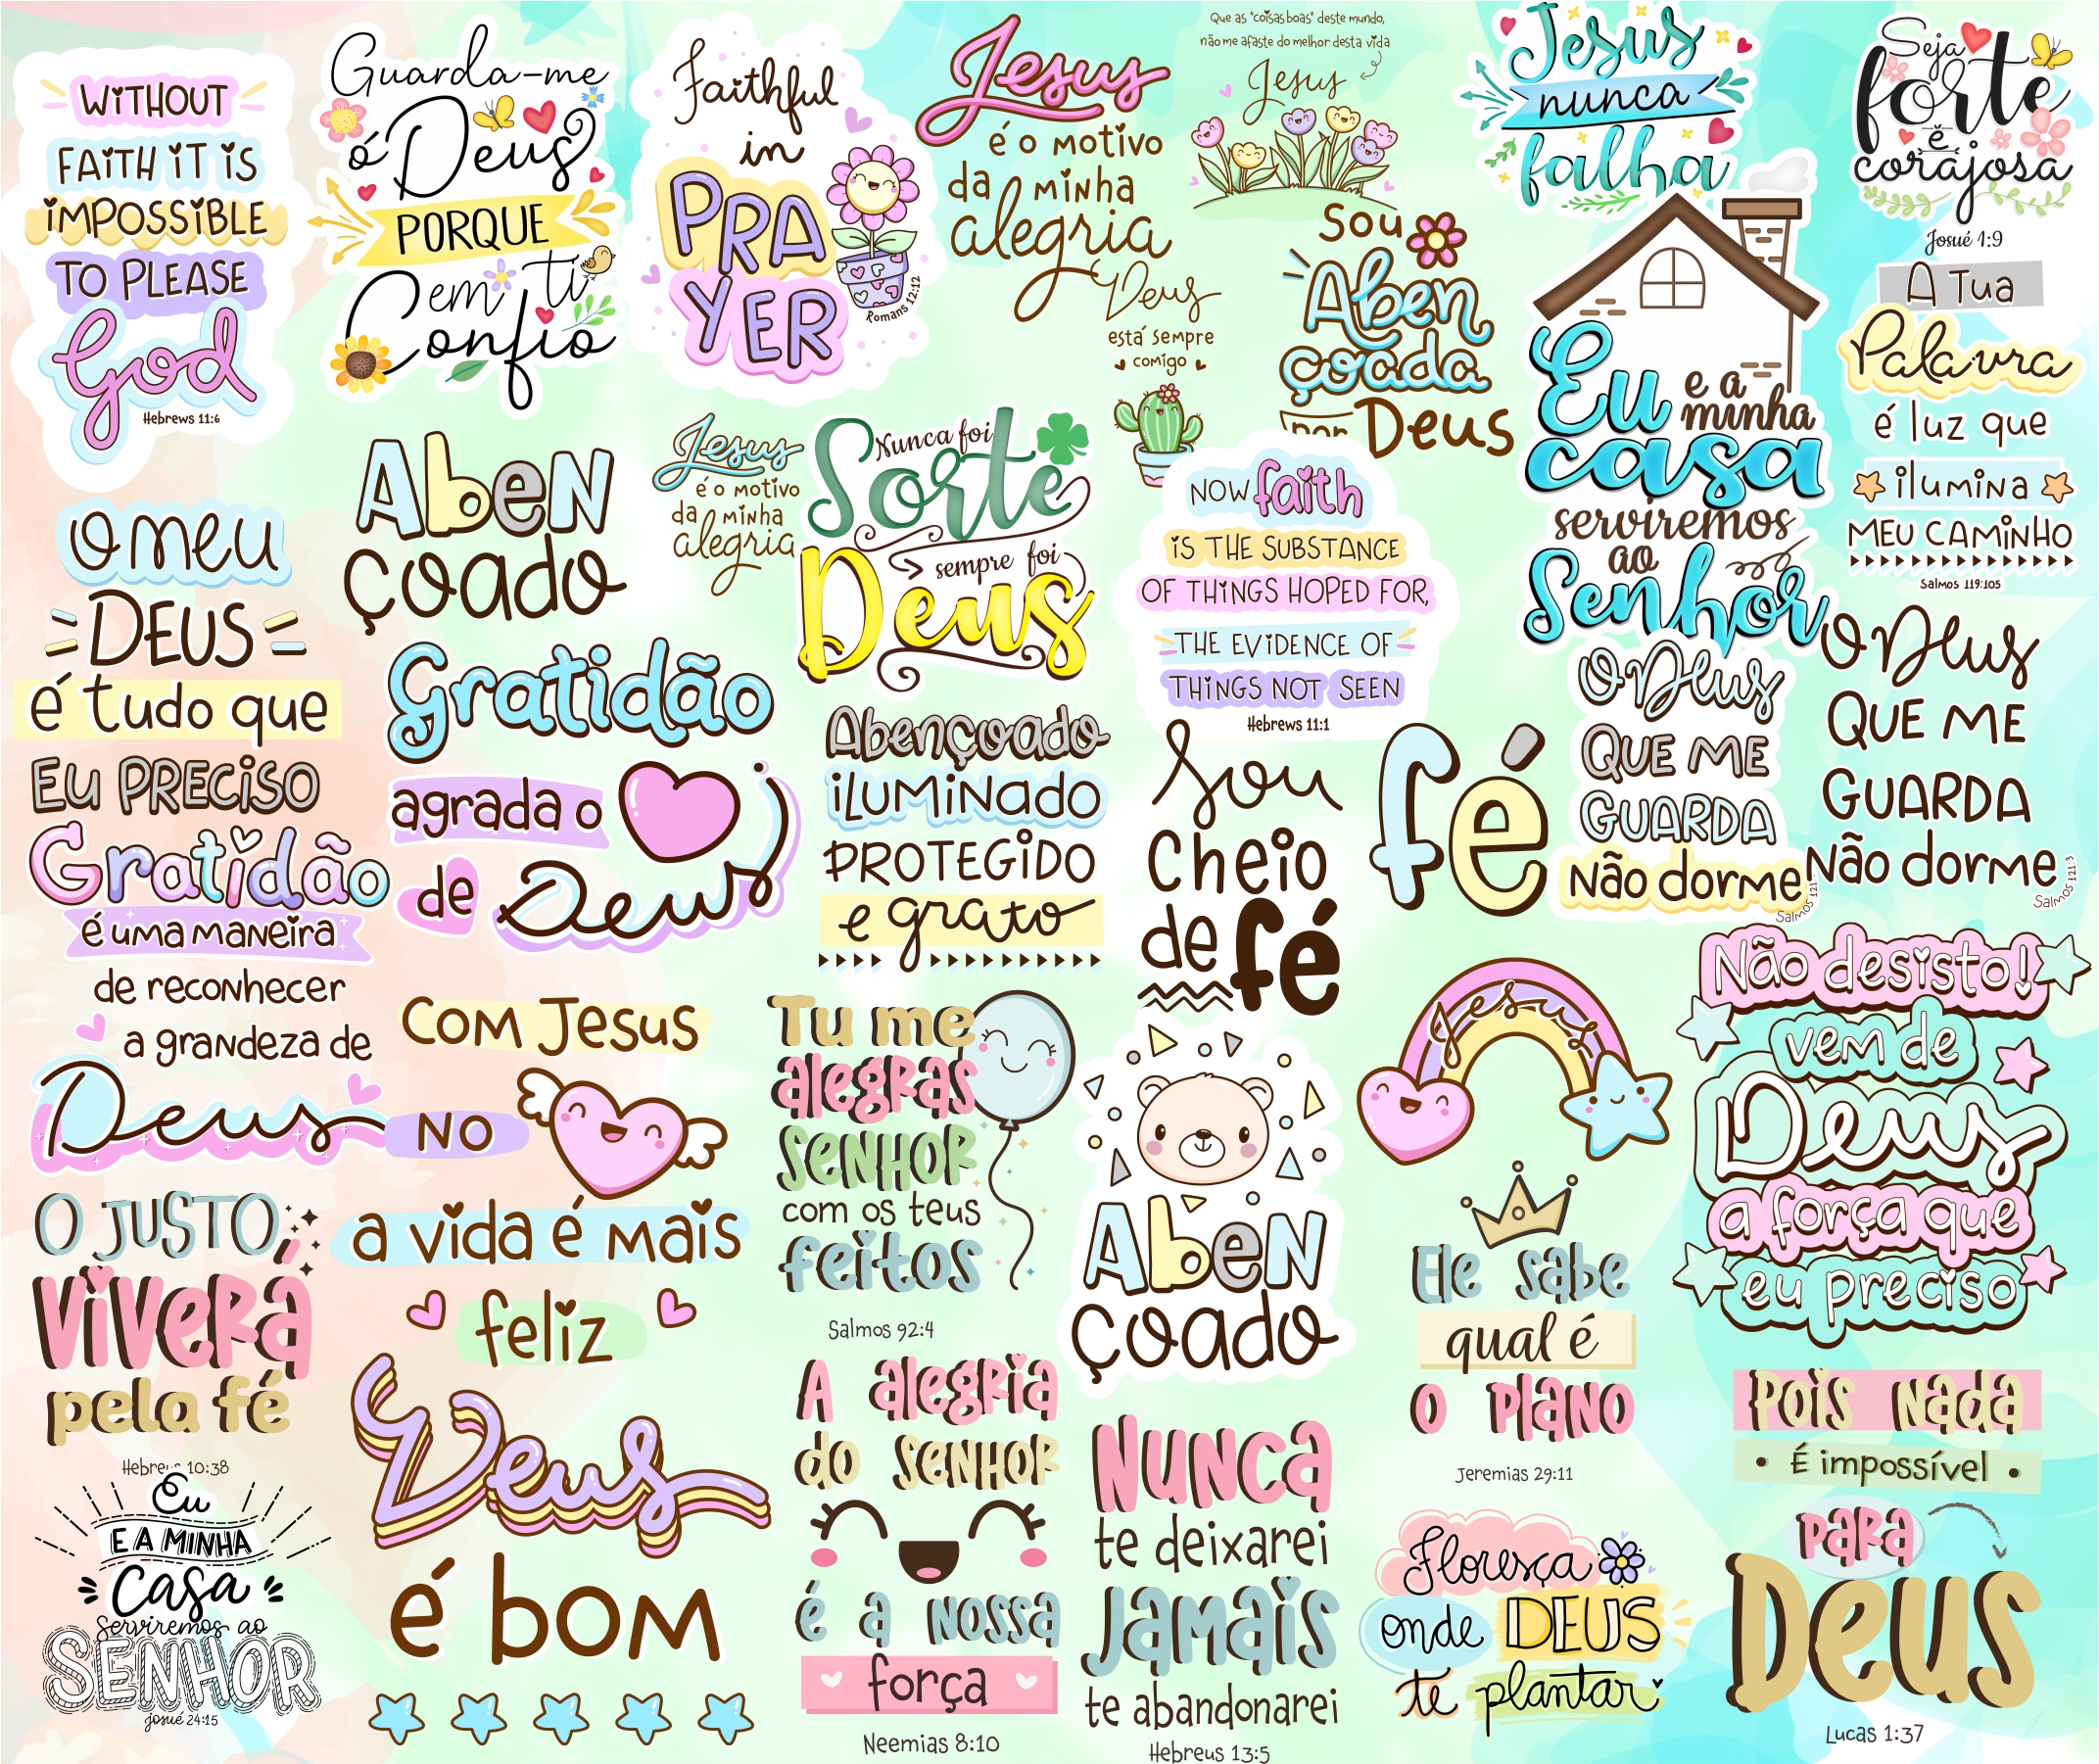 WITHOUT
FAITH IT IS
IMPOSSIBLE
TO PLEASE
God
Hebrews 11:6
Guarda-me
ó Deus
PORQUE
em ti
Confio
Faithful
in
PRA
YER
Romans 12:12
Jesus
é o motivo
da minha
alegria
Que as "coisas boas" deste mundo,
não me afaste do melhor desta vida
Jesus
Deus
está sempre
comigo
Sou
Aben
çoada
por Deus
Jesus
nunca
falha
Seja
forte
e
corajosa
Josué 1:9
Eu e a
minha
casa
serviremos
ao
Senhor
A Tua
Palavra
é luz que
ilumina
MEU CAMINHO
Salmos 119:105
O meu
DEUS
é tudo que
EU PRECISO
Aben
çoado
Jesus
é o motivo
da minha
alegria
Nunca foi
Sorte
sempre foi
Deus
NOW faith
IS THE SUBSTANCE
OF THINGS HOPED FOR,
THE EVIDENCE OF
THINGS NOT SEEN
Hebrews 11:1
Gratidão
agrada o
de Deus
Abençoado
iLUMINADO
PROTEGIDO
e grato
Sou
cheio
de fé
fé
O Deus
QUE ME
GUARDA
Não dorme
Salmos 121
O Deus
QUE ME
GUARDA
Não dorme
Salmos 121:3
Gratidão
é uma maneira
de reconhecer
a grandeza de
Deus
Com Jesus
NO
a vida é mais
feliz
Tu me
alegras
SENHOR
com os teus
feitos
Salmos 92:4
Aben
çoado
Jesus
Não desisto!
vem de
Deus
a força que
eu preciso
O JUSTO
viverá
pela fé
Hebreus 10:38
Deus
é bom
A alegria
do SENHOR
é a nossa
força
Neemias 8:10
Nunca
te deixarei
Jamais
te abandonarei
Hebreus 13:5
Ele sabe
qual é
o plano
Jeremias 29:11
Pois nada
É impossível
para
Deus
Lucas 1:37
Eu
E A MINHA
Casa
Serviremos ao
SENHOR
Josué 24:15
Floresça
onde DEUS
te plantar